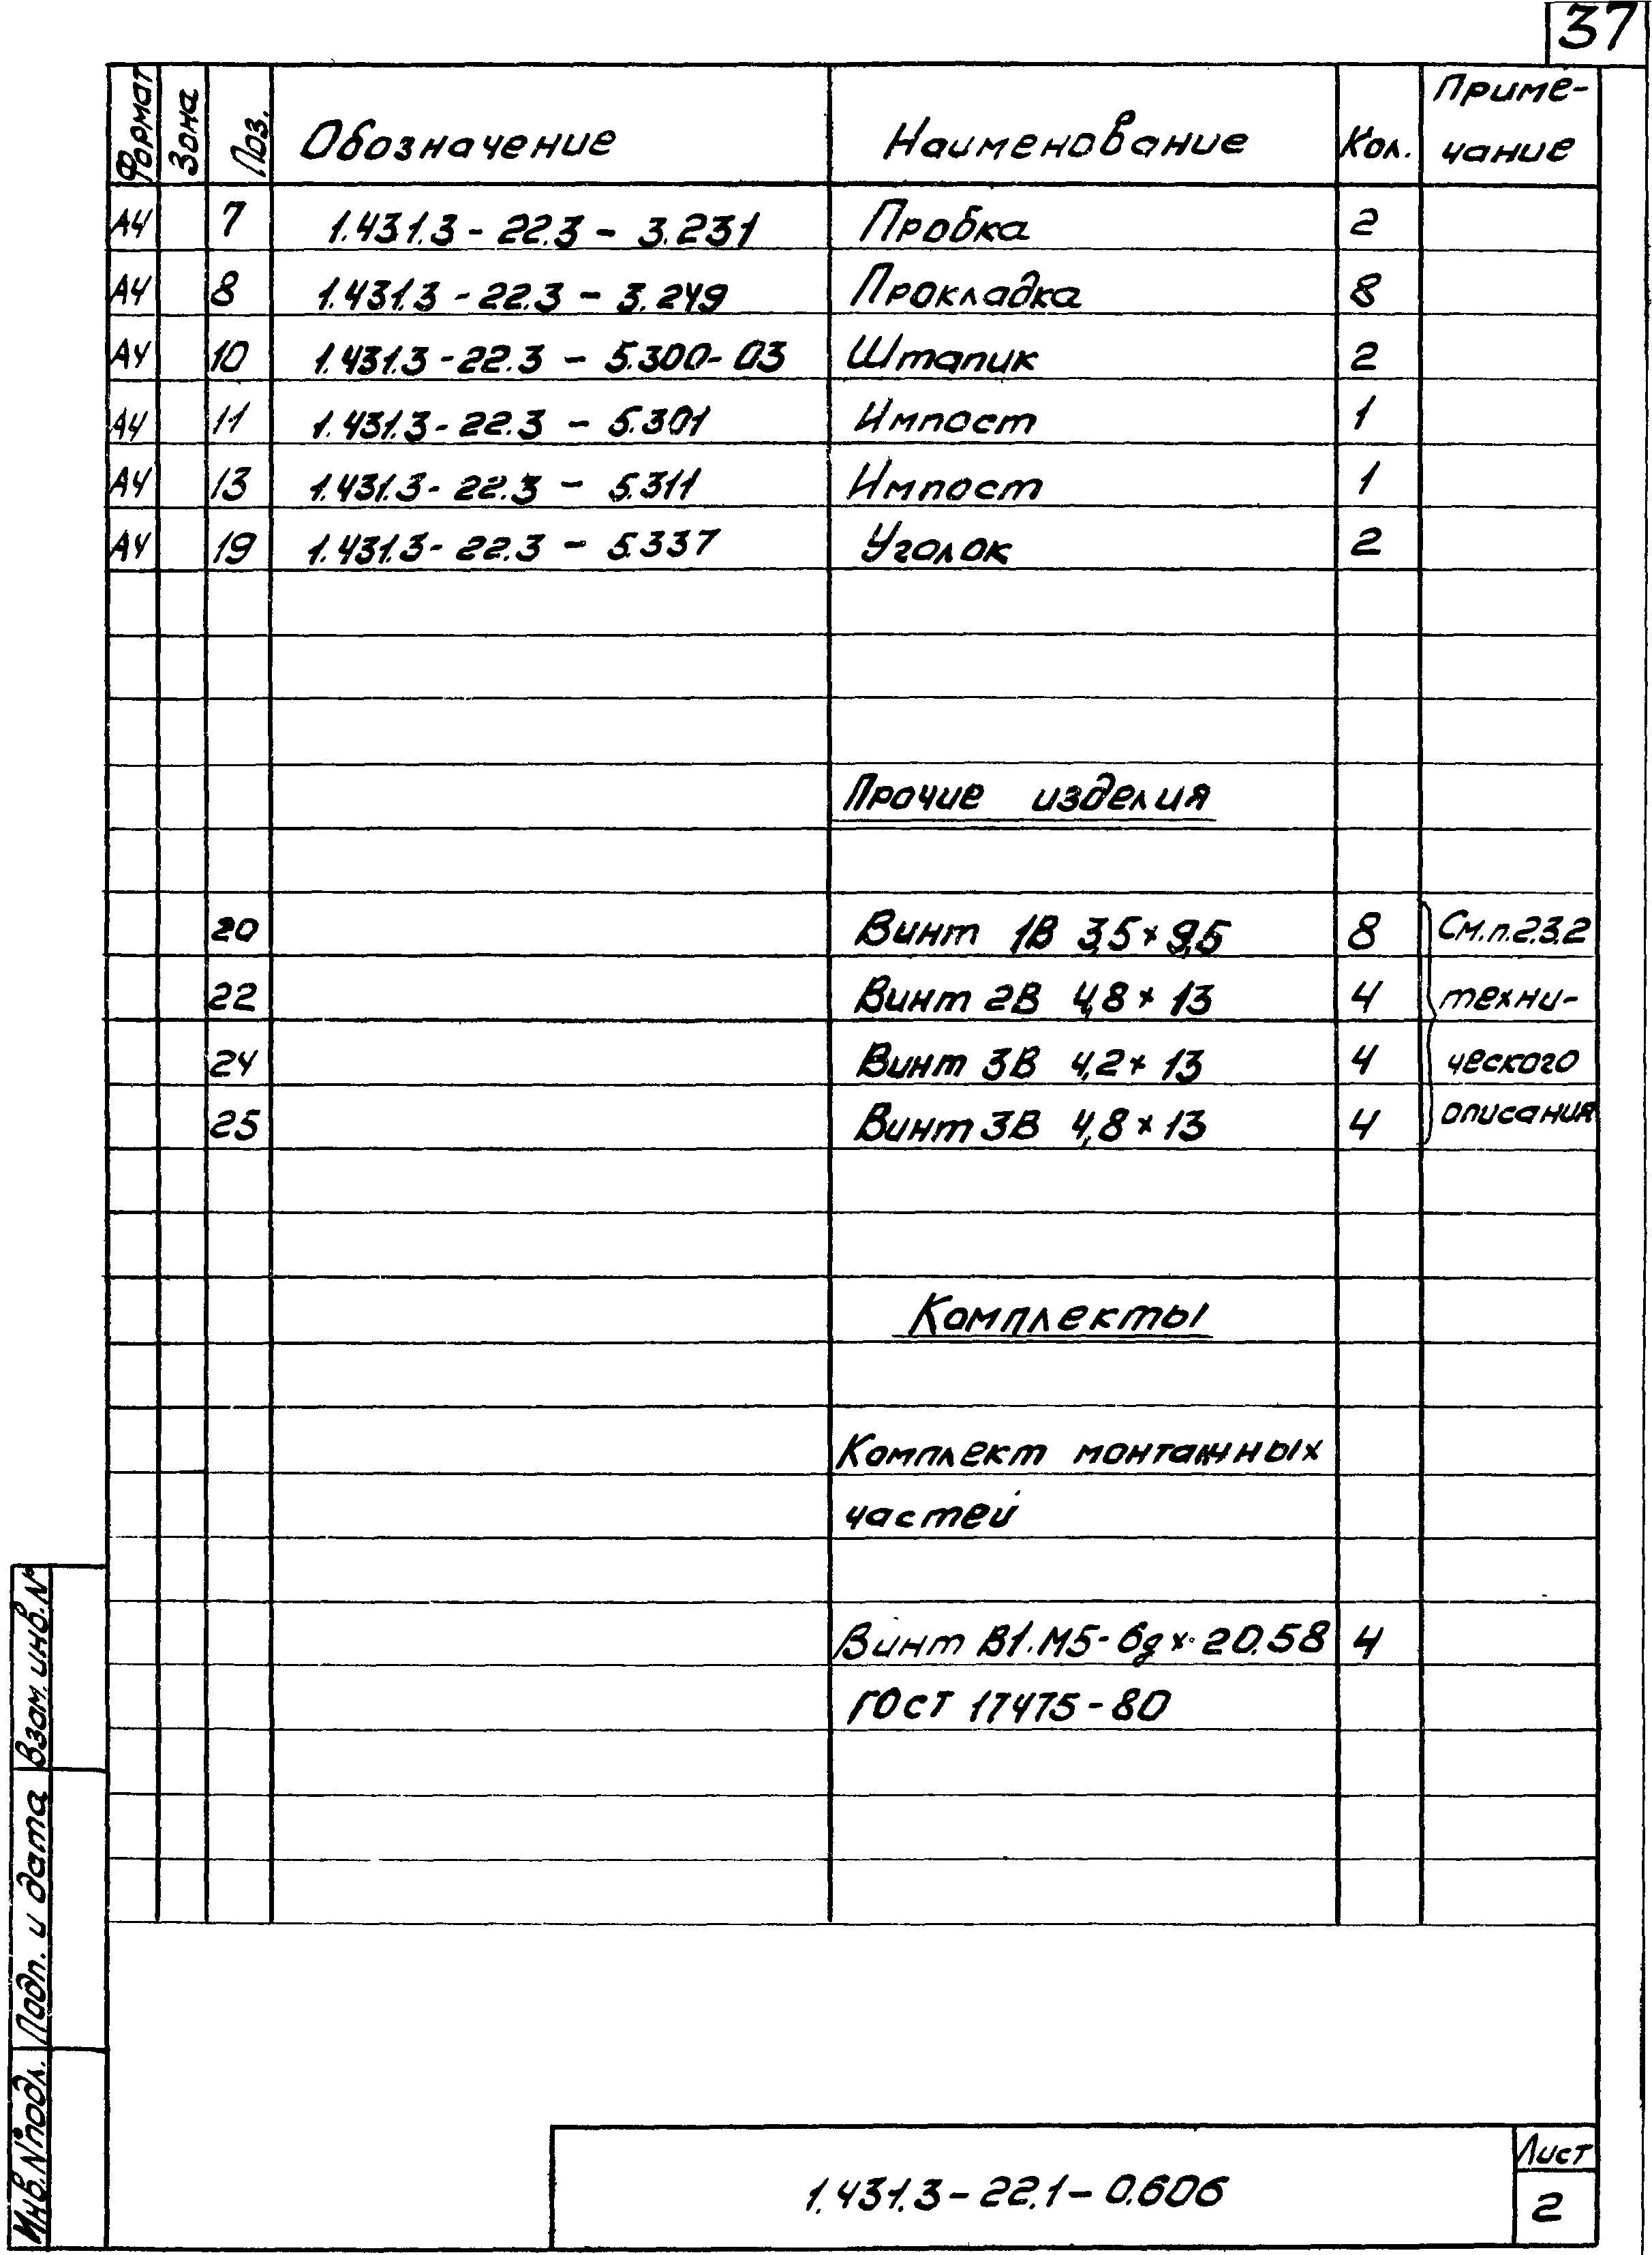 37
Формат Зона Поз. Обозначение Наименование Кол. Приме-
чание
А4 7 1.431.3-22.3-3.231 Пробка 2
А4 8 1.431.3-22.3-3.249 Прокладка 8
А4 10 1.431.3-22.3-5.300-03 Штапик 2
А4 11 1.431.3-22.3-5.301 Импост 1
А4 13 1.431.3-22.3-5.311 Импост 1
А4 19 1.431.3-22.3-5.337 Уголок 2
Прочие изделия
20 Винт 1В 3,5×9,5 8 См.п.2.3.2
22 Винт 2В 4,8×13 4 техни-
24 Винт 3В 4,2×13 4 ческого
25 Винт 3В 4,8×13 4 описания
Комплекты
Комплект монтажных
частей
Винт В1.М5-6g×20.58 4
ГОСТ 17475-80
Взам. инв. №
Подп. и дата
Инв.№подл.
1.431.3-22.1-0.606
Лист
2